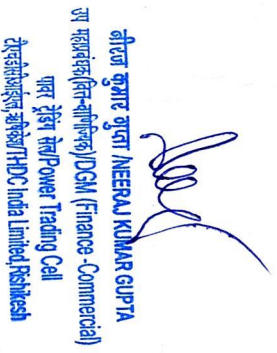 नीरज कुमार गुप्ता /NEERAJ KUMAR GUPTA
उप महाप्रबंधक(वित्त-वाणिज्यिक)/DGM (Finance-Commercial)
पावर ट्रेडिंग सैल/Power Trading Cell
टीएचडीसीइंडियालि, ऋषिकेश/THDC India Limited, Rishikesh